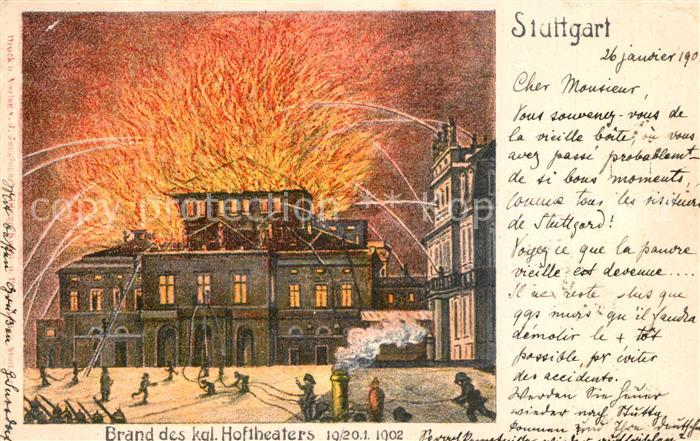 Stuttgart
26 janvier 190
Cher Monsieur,
Vous souvenez-vous de
la vieille boîte, où vous
avez passé probablement
de si bons moments,
comme tous les visiteurs
de Stuttgard!
Voyez ce que la pauvre
vieille est devenue....
Il ne reste plus que
qqs murs qu'il faudra
démolir le + tôt
possible, pr éviter
des accidents.
Werden Sie heuer
wieder nach Stuttg.
kommen
Brand des kgl. Hoftheaters 19/20.1. 1902
Druck u. Verlag v. J.
Mit besten Grüßen
copyright protection